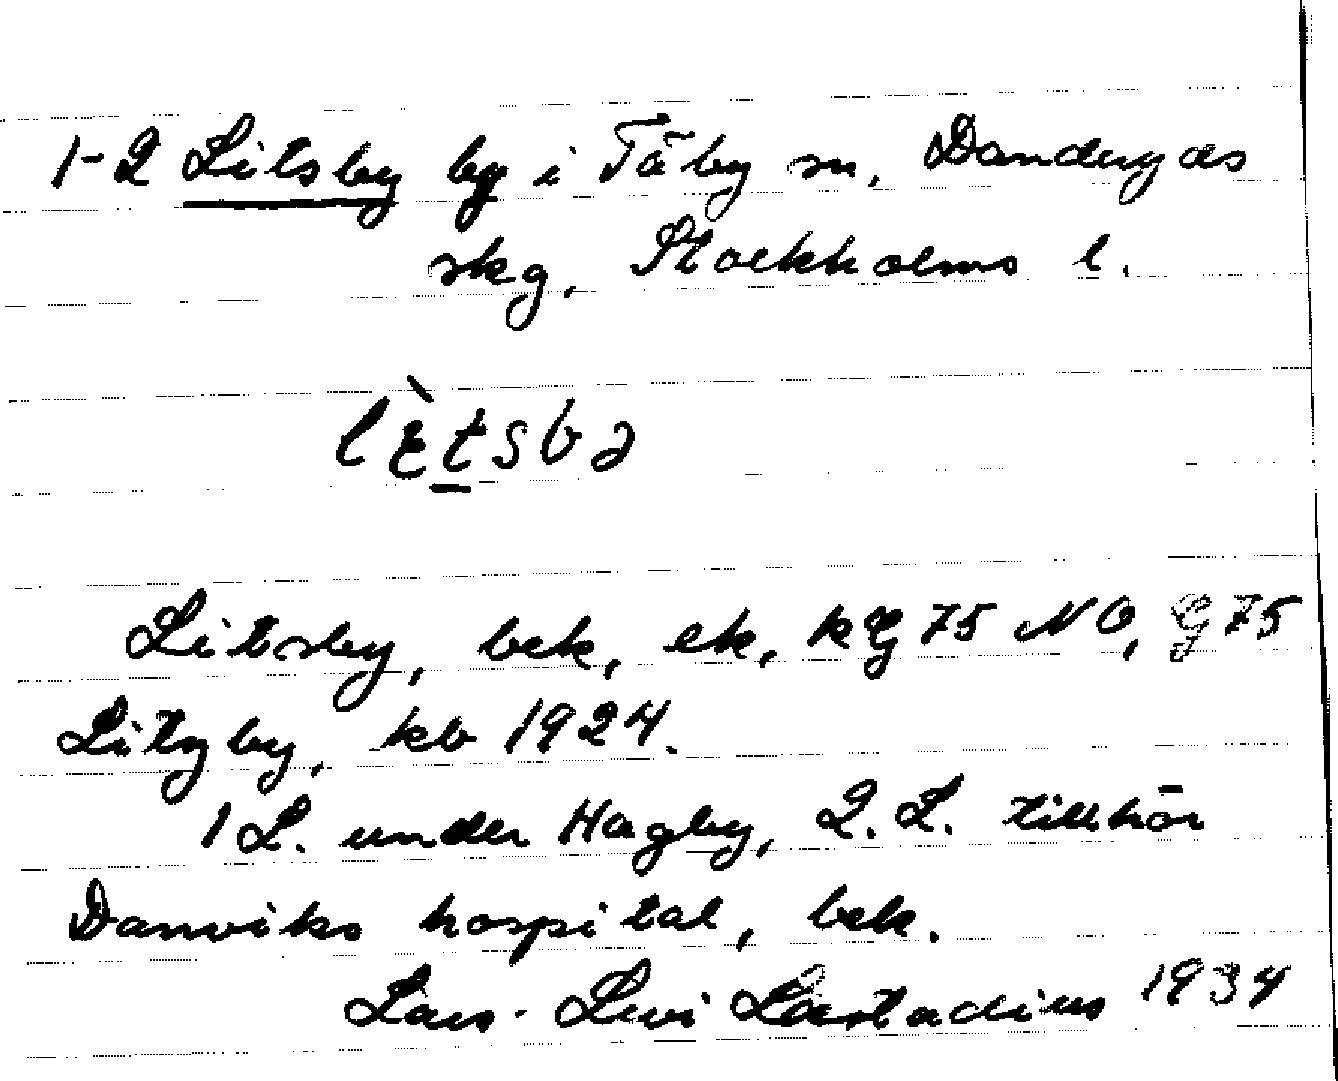 1-2 Litsby by i Täby sn, Danderyds
skg, Stockholms l.
lètsbə
Litsby, bek, ek, kG 75 NO, G 75
Litzby, kb 1924.
1 L. under Hagby, 2. L. tillhör
Danviks hospital, bek.
Lars-Levi Læstadius 1934